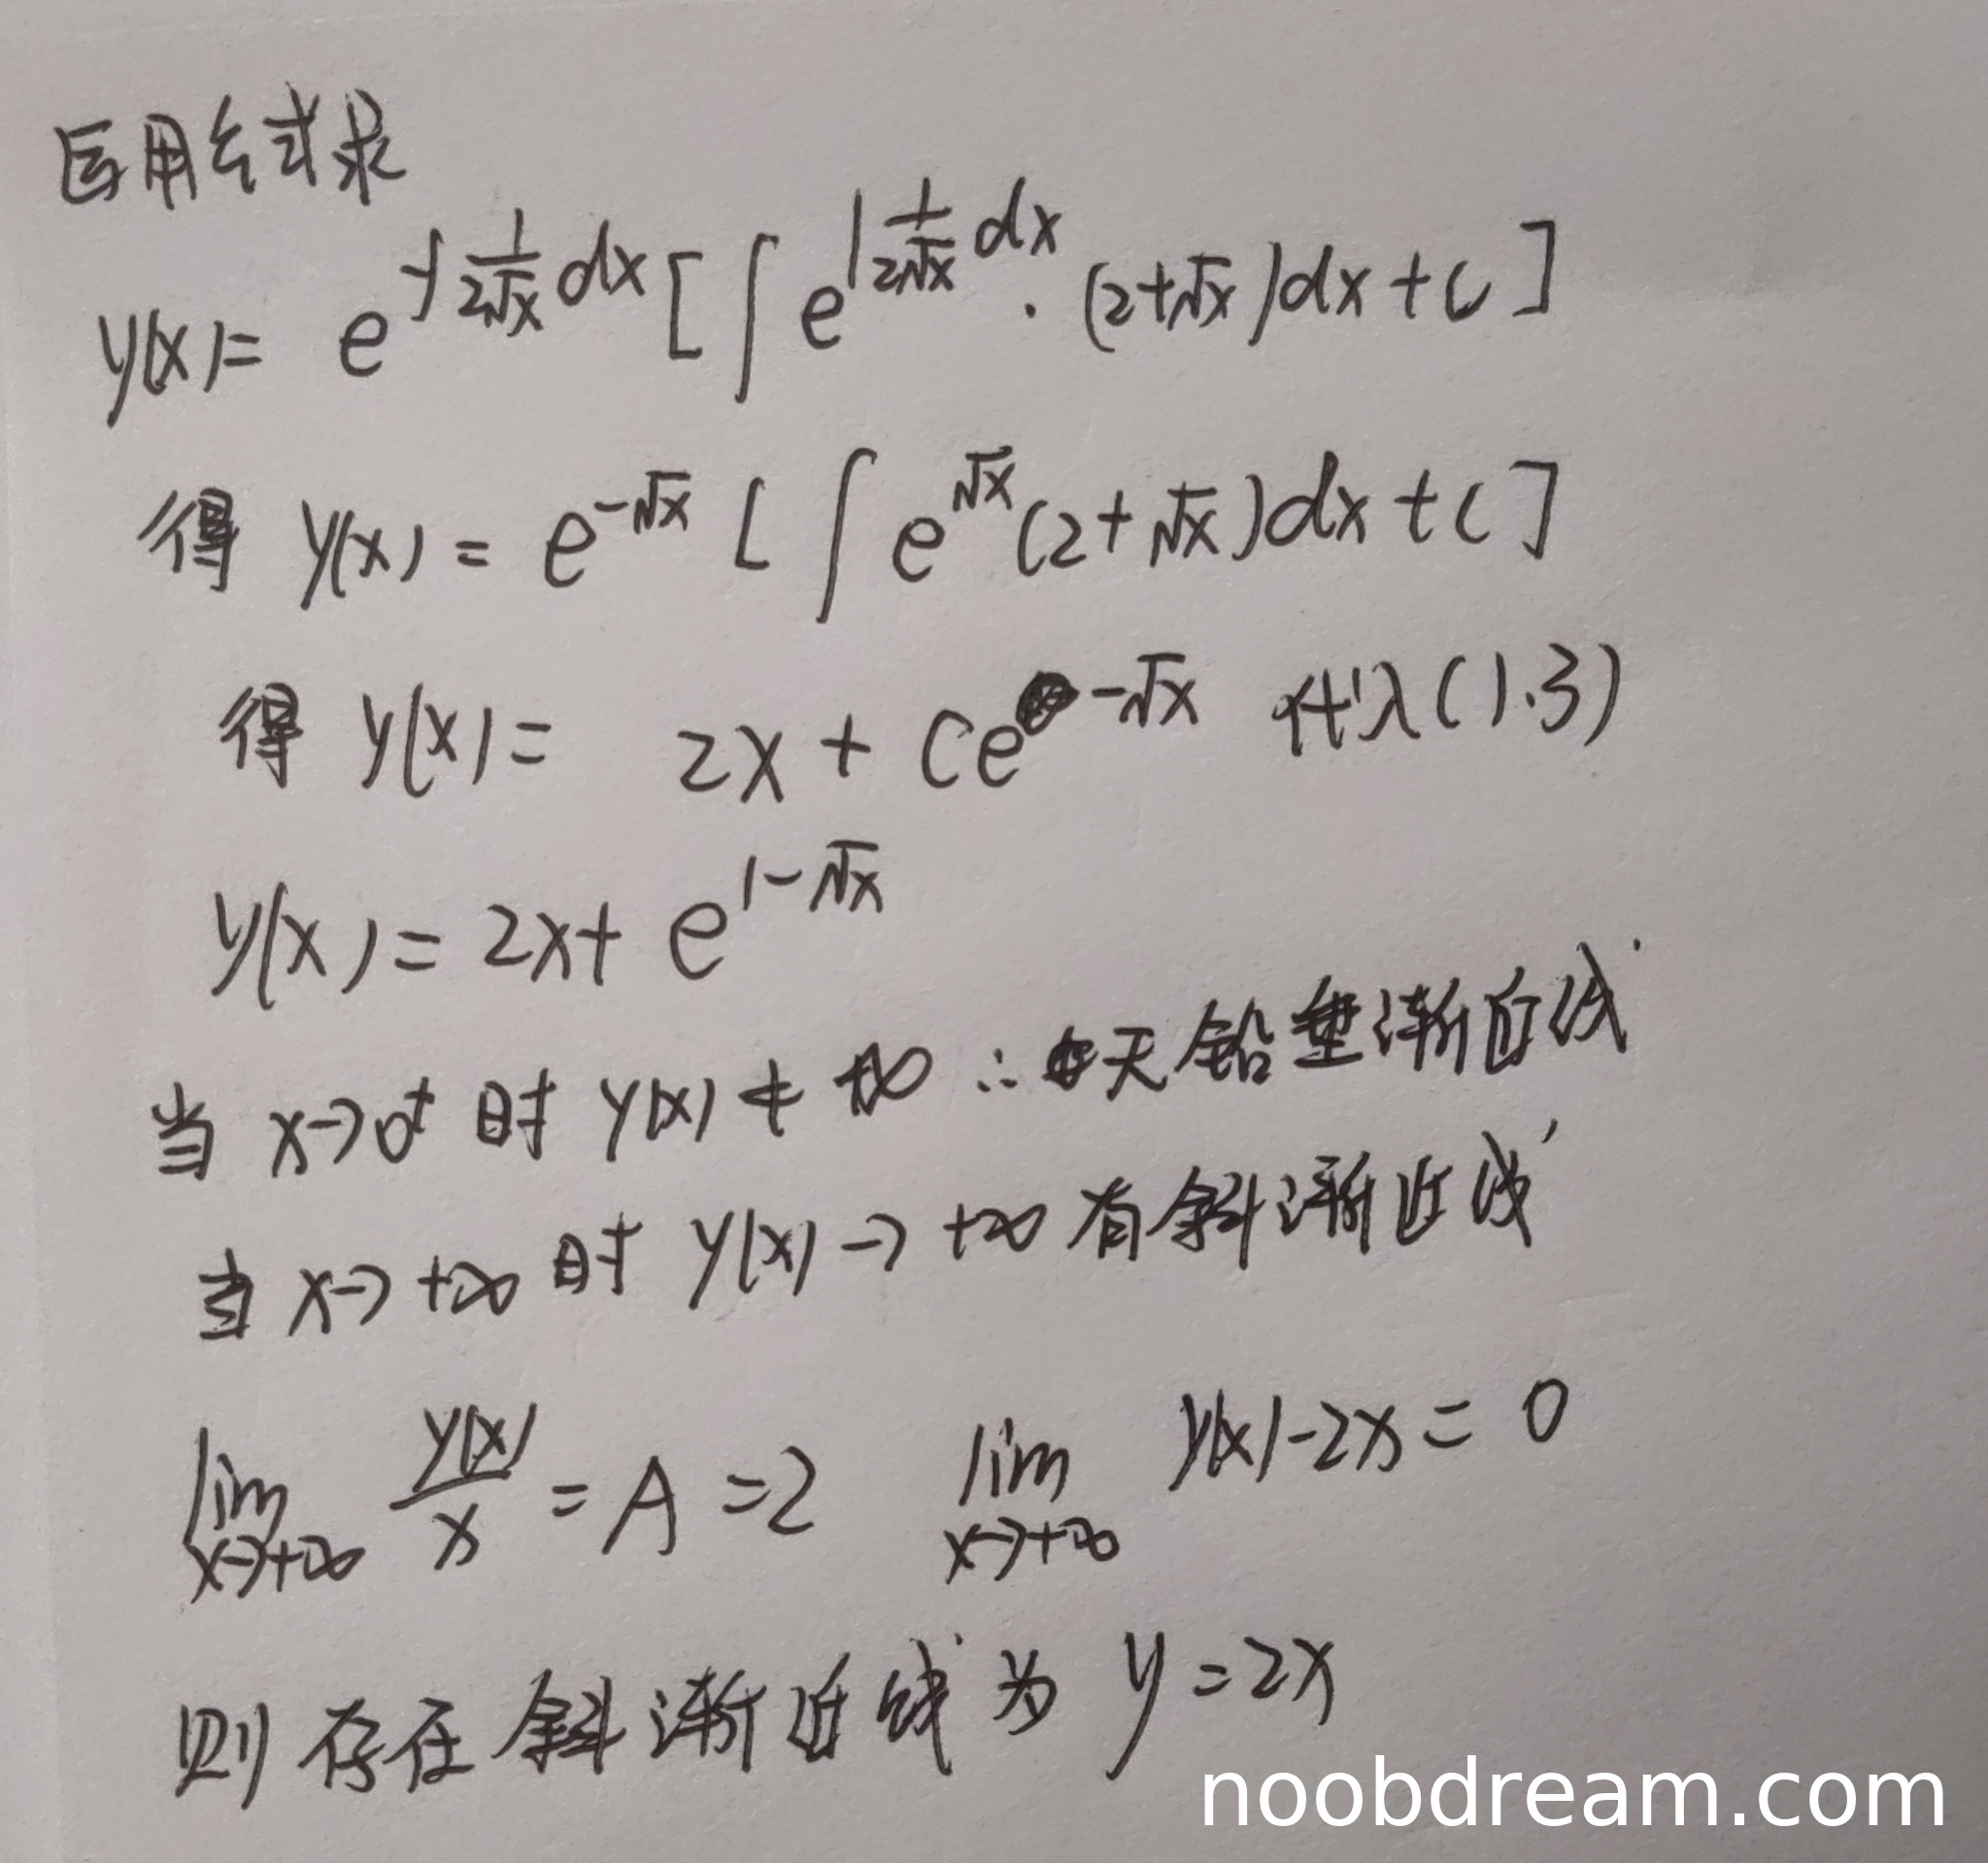 应用公式求
y(x)= e^{-∫\frac{1}{2√x}dx}[∫e^{∫\frac{1}{2√x}dx}·(2+√x)dx+C]
得 y(x) = e^{-√x}[∫e^{√x}(2+√x)dx+C]
得 y(x)= 2x + Ce^{-√x} 代入(1.3)
y(x)=2x+e^{1-√x}
当 x→0⁺ 时 y(x)≠+∞ ∴无铅垂渐近线
当 x→+∞ 时 y(x)→+∞ 有斜渐近线
lim_{x→+∞} \frac{y(x)}{x} = A = 2 lim_{x→+∞} y(x)-2x = 0
则存在斜渐近线为 y=2x
noobdream.com